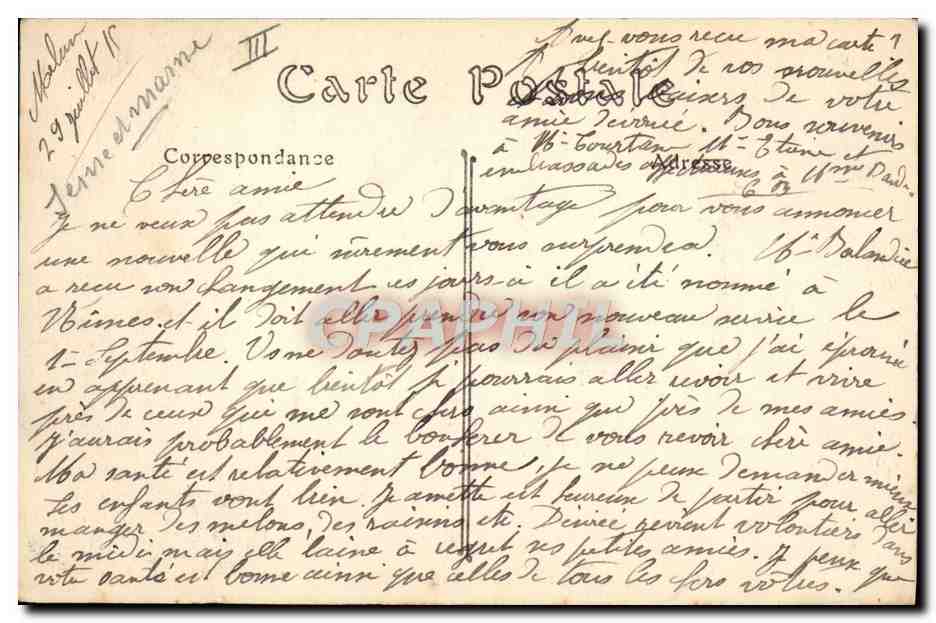 Melun
29 juillet 15
Seine et marne
III
Carte Postale
Correspondance
Adresse
Chère amie
Je ne veux pas attendre d'avantage pour vous annoncer
une nouvelle qui sûrement vous surprendra. Mr Balandre
a reçu son changement ces jours-ci il a été nommé à
Nîmes et il doit aller prendre son nouveau service le
1er Septembre. Vs ne doutez pas du plaisir que j'ai éprouvé
en apprenant que bientôt je pourrais aller revoir et vivre
près de ceux qui me sont chers ainsi que près de mes amies.
J'aurais probablement le bonheur de vous revoir chère amie.
Ma santé est relativement bonne, je ne peux demander mieux
Les enfants vont bien. est heureux de partir pour aller
manger des melons, des raisins etc. Désirée revient volontiers dans
le midi mais elle laisse à regret ses petites amies. Je pense que
votre santé est bonne ainsi que celles de tous les chers vôtres.
Avez-vous reçu ma carte ?
A bientôt de vos nouvelles
baisers de votre
amie Désirée. Bons souvenirs
à Mr et
embrassades à Mme
CPAPHIL